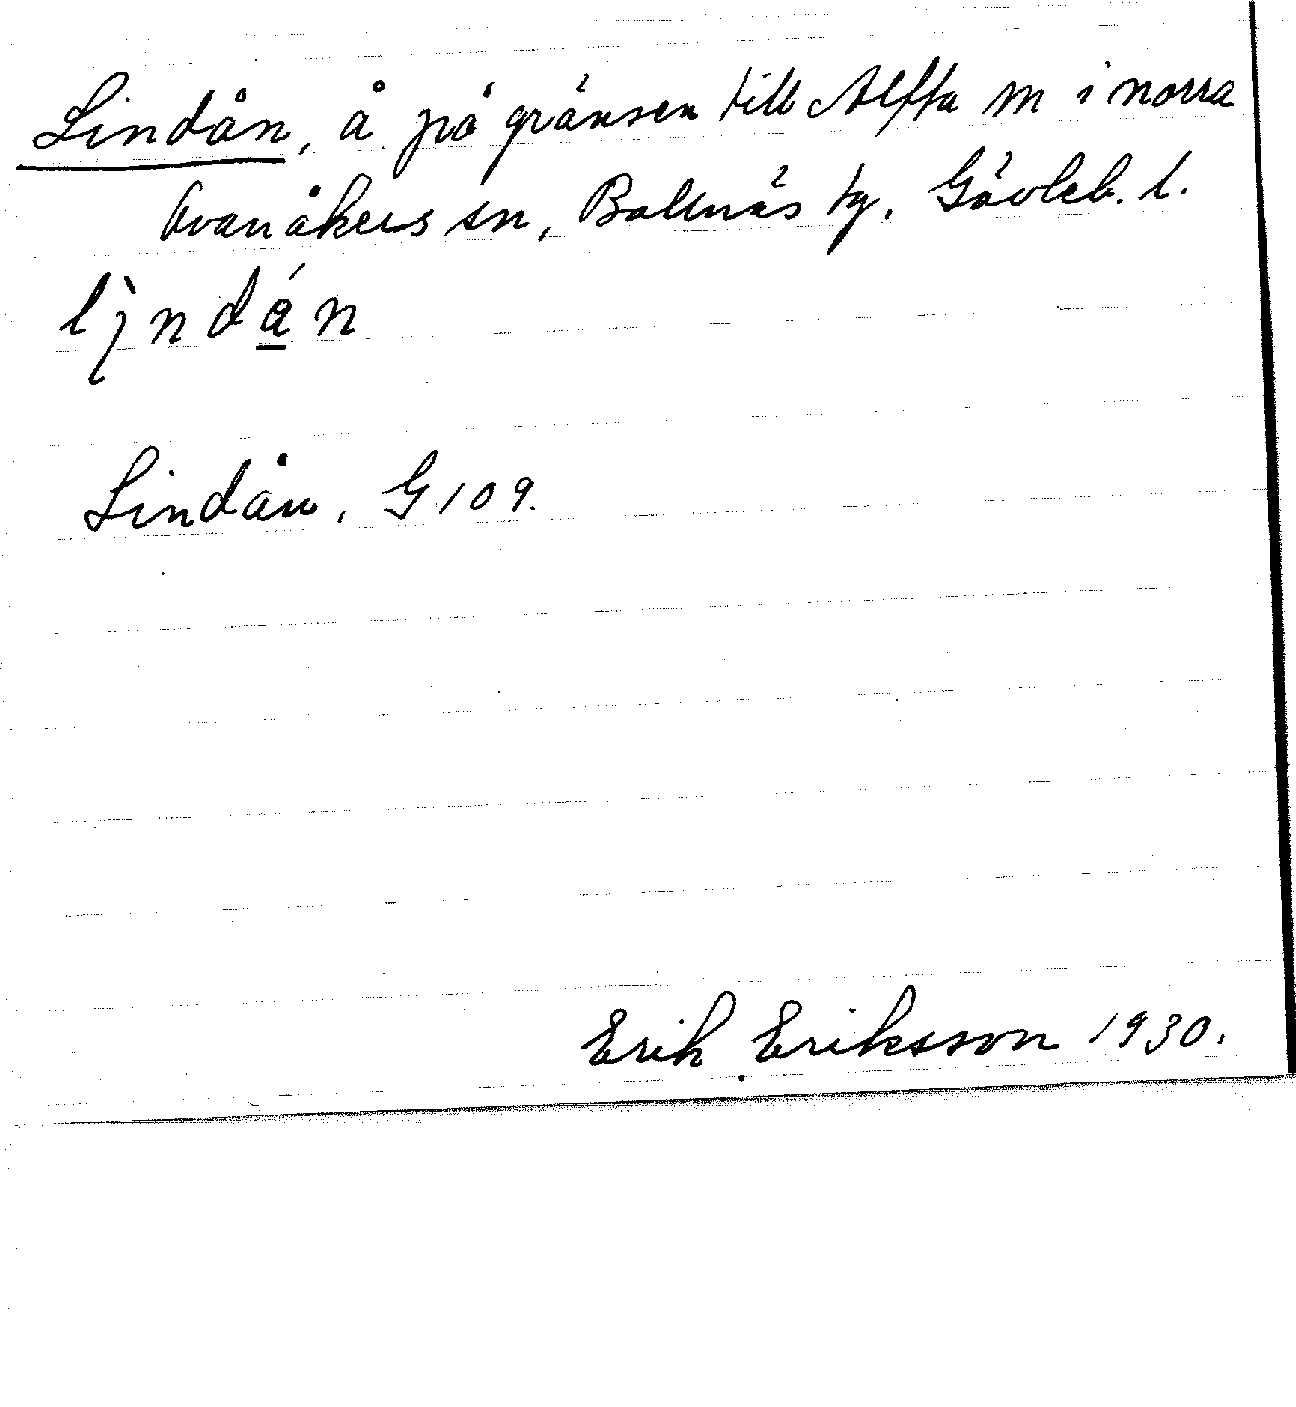 Lindån, å på gränsen till Alfta sn i norra
Ovanåkers sn, Bollnäs tg. Gävleb. l.
Lindån, G 109.
Erik Eriksson 1930.